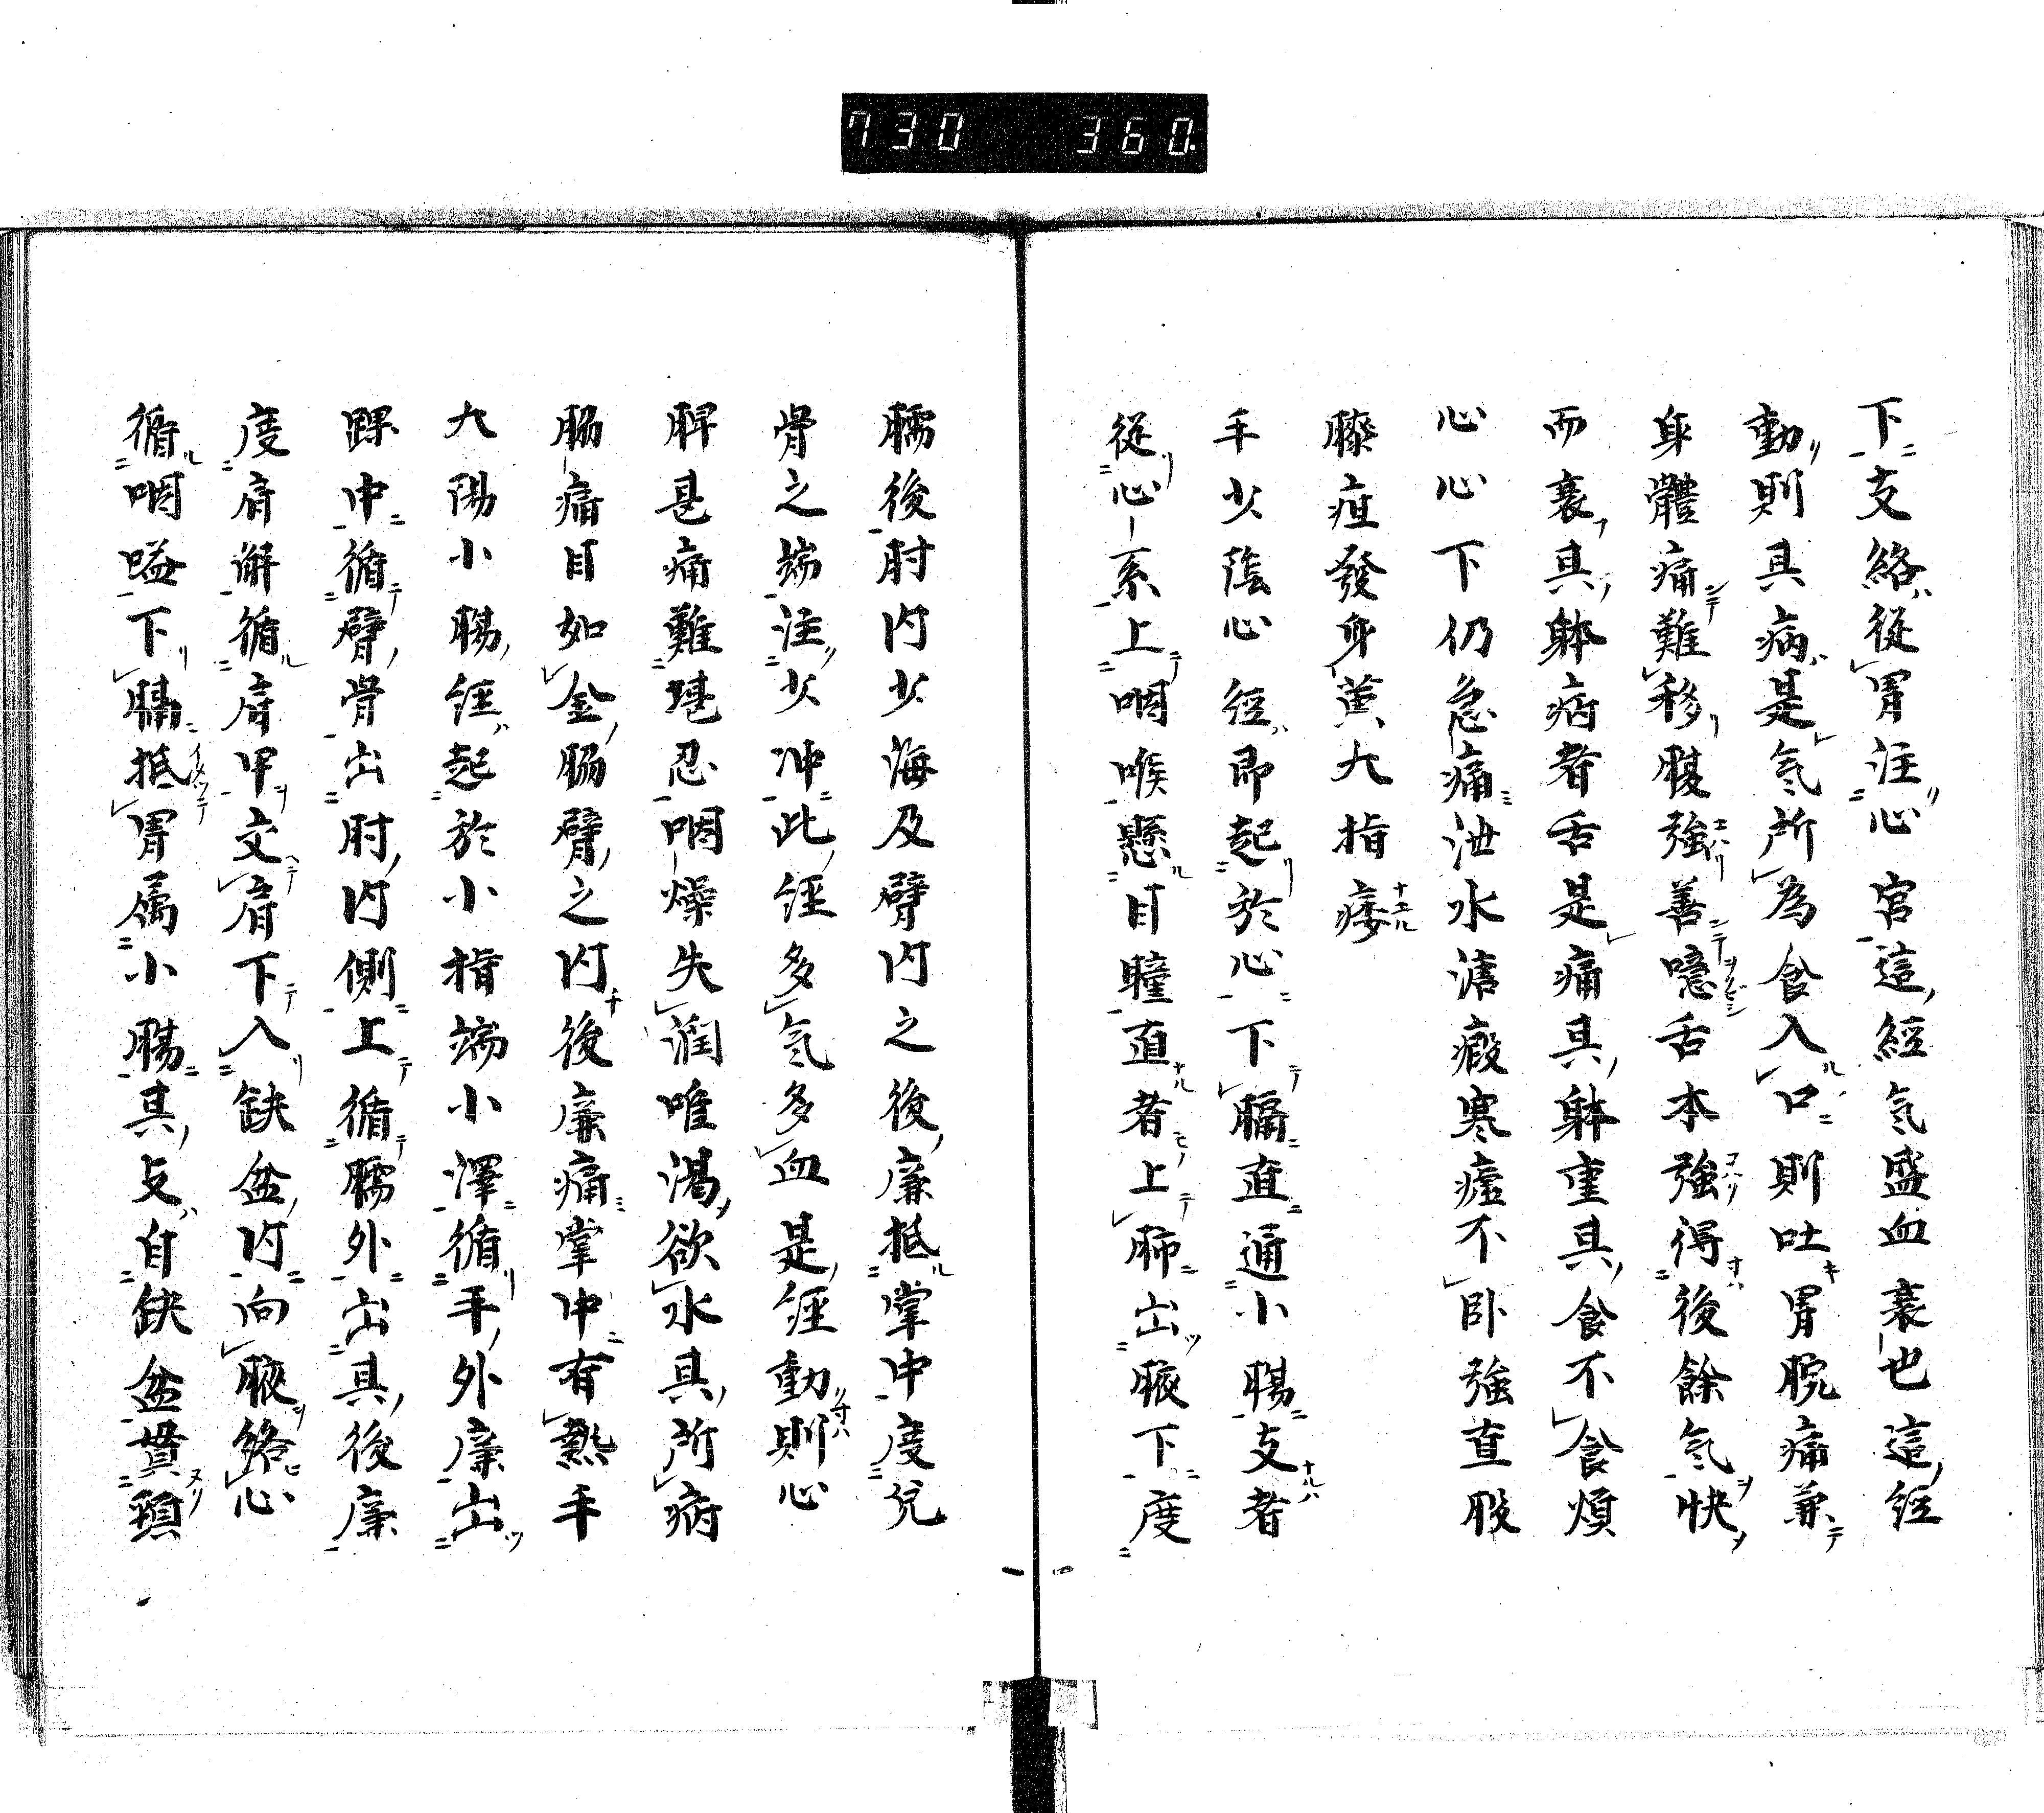 730 360.
下支絡從胃注心宮這經氣盛血衰也這經
動則其病是氣所為食入口則吐胃脘痛兼
身體痛難移腹強善噫舌本強得後餘氣快
而衰其躰病者舌是痛其躰重其食不食煩
心心下仍急痛泄水溏瘕寒瘧不卧強直股
膝疽發身黄大指痿
手少陰心經即起於心下膈直通小腸支者
從心系上咽喉懸目瞳直者上肺出腋下度
臑後肘内少海及臂内之後廉抵掌中度兌
骨之端注少冲此經多氣多血是經動則心
脾甚痛難堪忍咽燥失潤唯渇欲水其所病
脇痛目如金脇臂之内後廉痛掌中有熱手
大陽小腸經起於小指端小澤循手外廉出
踝中循臂骨出肘内側上循臑外出其後廉
度肩解循肩甲交肩下入缺盆内向腋絡心
循咽嗌下膈抵胃属小腸其支自缺盆貫頚